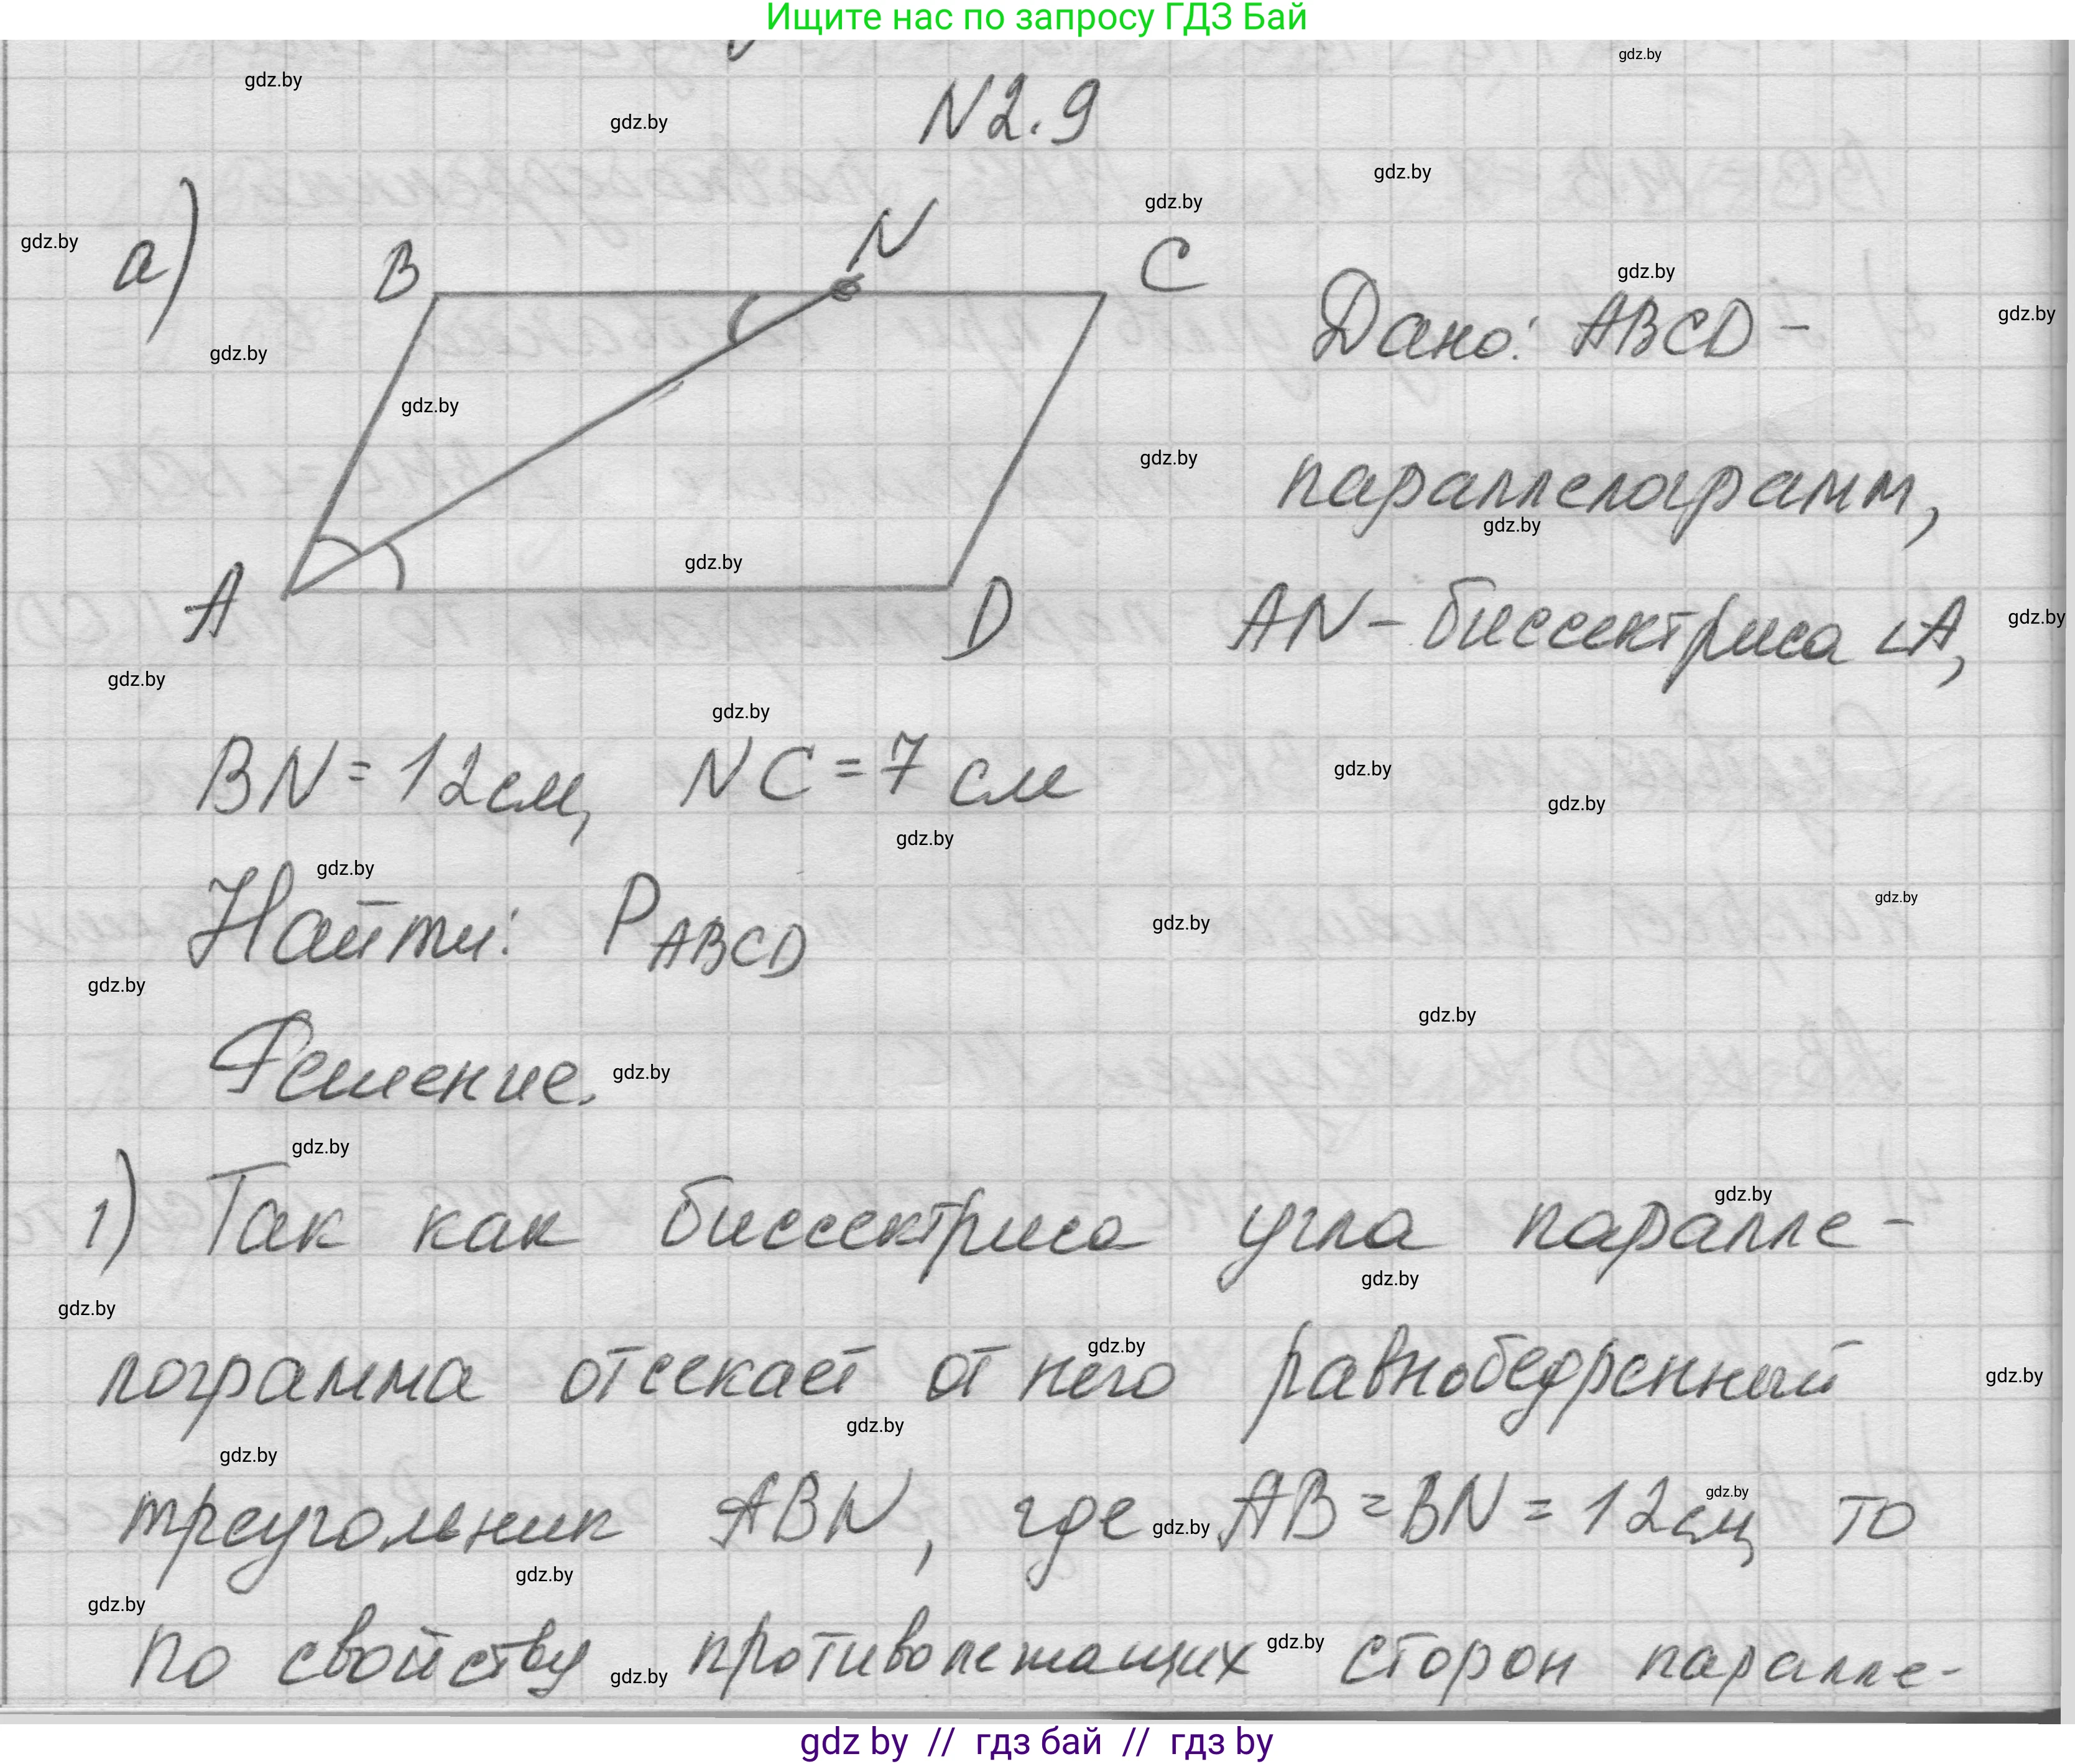 Ищите нас по запросу ГДЗ Бай
N2.9
а)
B
N
C
A
D
Дано: ABCD -
параллелограмм,
AN - биссектриса ∠A,
BN = 12 см, NC = 7 см
Найти: P ABCD
Решение.
1) Так как биссектриса угла паралле-
лограмма отсекает от него равнобедренный
треугольник ABN, где AB = BN = 12 см, то
по свойству противолежащих сторон паралле-
gdz by // гдз бай // гдз by